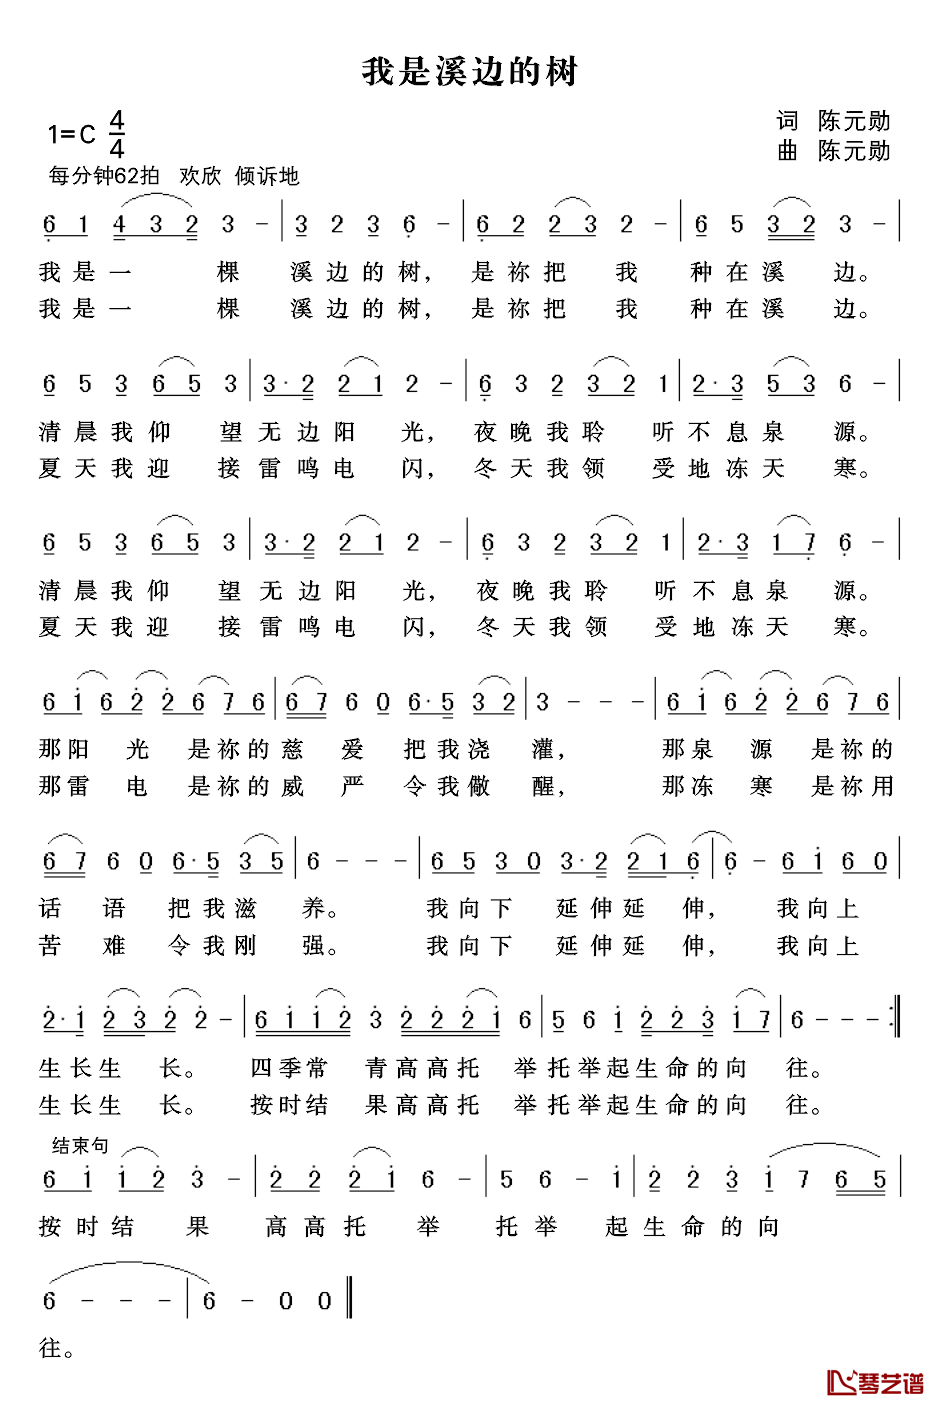 我是溪边的树
1=C 4/4
词 陈元勋
曲 陈元勋
每分钟62拍 欢欣 倾诉地
6 1 4 3 2 3 - | 3 2 3 6 - | 6 2 2 3 2 - | 6 5 3 2 3 - |
我是一 棵 溪边的树, 是祢把 我 种在溪 边。
我是一 棵 溪边的树, 是祢把 我 种在溪 边。
6 5 3 6 5 3 | 3· 2 2 1 2 - | 6 3 2 3 2 1 | 2· 3 5 3 6 - |
清晨我仰 望无边阳 光, 夜晚我聆 听不息泉 源。
夏天我迎 接雷鸣电 闪, 冬天我领 受地冻天 寒。
6 5 3 6 5 3 | 3· 2 2 1 2 - | 6 3 2 3 2 1 | 2· 3 1 7 6 - |
清晨我仰 望无边阳 光, 夜晚我聆 听不息泉 源。
夏天我迎 接雷鸣电 闪, 冬天我领 受地冻天 寒。
6 1 6 2 2 6 7 6 | 6 7 6 0 6· 5 3 2 | 3 - - - | 6 1 6 2 2 6 7 6 |
那阳 光 是祢的慈 爱 把我浇 灌, 那泉 源 是祢的
那雷 电 是祢的威 严 令我儆 醒, 那冻 寒 是祢用
6 7 6 0 6· 5 3 5 | 6 - - - | 6 5 3 0 3· 2 2 1 6 | 6 - 6 1 6 0 |
话 语 把我滋 养。 我向下 延伸延 伸, 我向上
苦 难 令我刚 强。 我向下 延伸延 伸, 我向上
2· 1 2 3 2 2 - | 6 1 1 2 3 2 2 2 1 6 | 5 6 1 2 2 3 1 7 | 6 - - - :‖
生长生 长。 四季常 青高高托 举托举起生命的向 往。
生长生 长。 按时结 果高高托 举托举起生命的向 往。
结束句
6 1 1 2 3 - | 2 2 2 1 6 - | 5 6 - 1 | 2 2 3 1 7 6 5 |
按时结 果 高高托 举 托举 起生命的向
6 - - - | 6 - 0 0 ‖
往。
琴艺谱